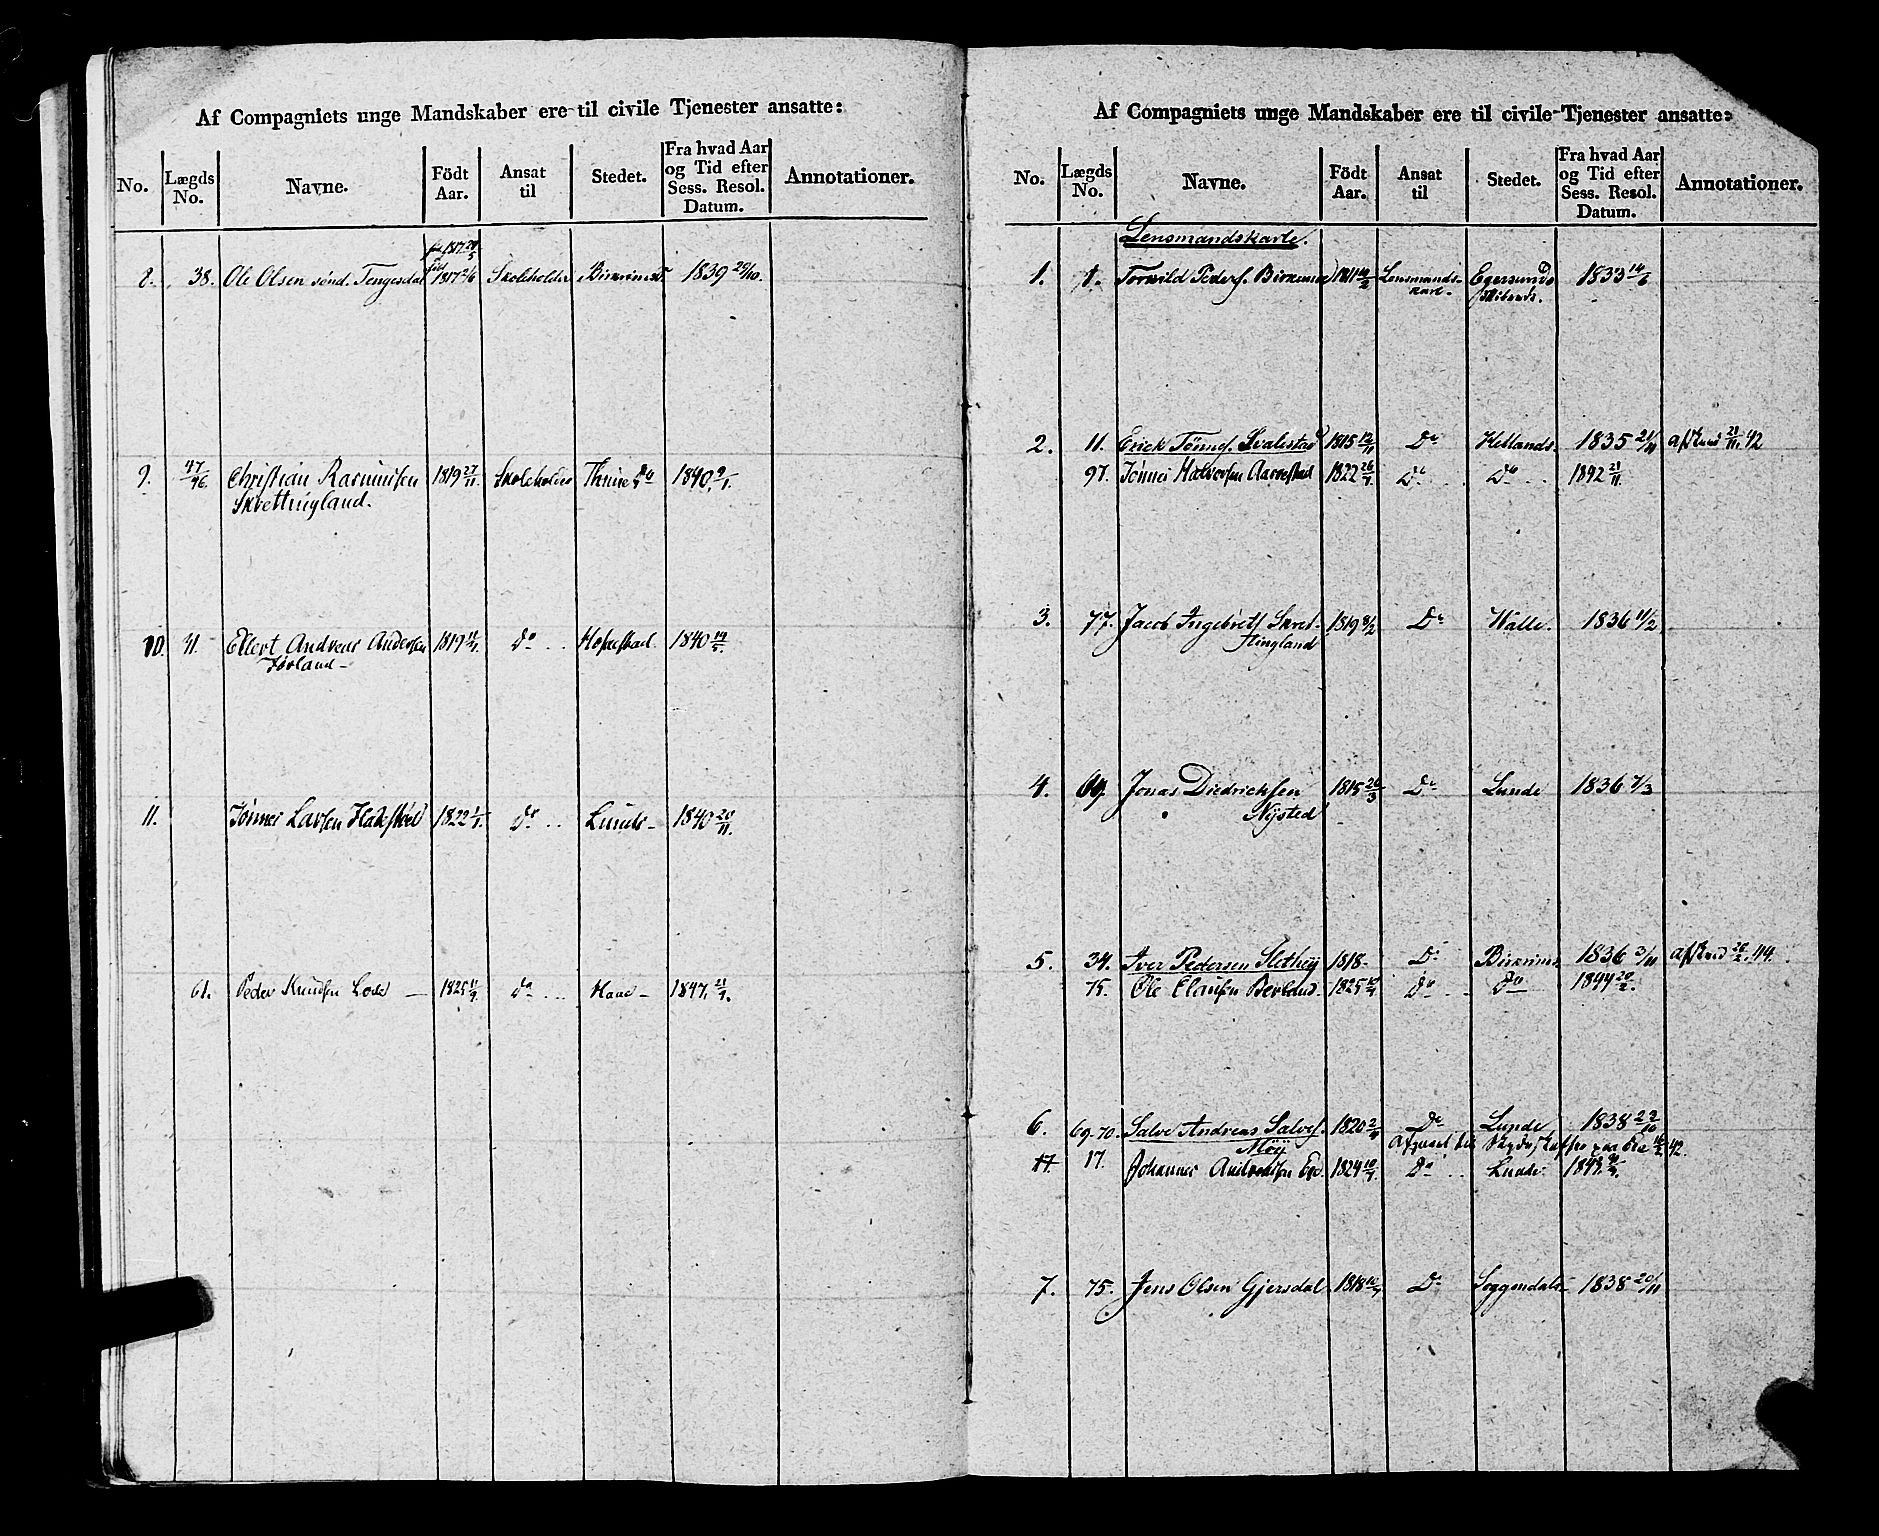 Af Compagniets unge Mandskaber ere til civile Tjenester ansatte:
No. Lægds No. Navne. Födt Aar. Ansat til Stedet. Fra hvad Aar og Tid efter Sess. Resol. Datum. Annotationer.
8. 38. Ole Olsen sönd. Tengesdal 1817 Skoleholder 1839 29/10.
9. 47/96 Christian Rasmussen 1819 27/11. Skoleholder Do 1840 9/1.
Skrettingland.
10. 31. Ellert Andreas Andersen 1819 Do 1840 14/5.
Jørland
11. Tönnes Larsen 1822 1/1. Do Lunds 1840 20/11.
61. Peder Knudsen Lode 1825 Do Haae 1847. 21/9.
Af Compagniets unge Mandskaber ere til civile Tjenester ansatte:
No. Lægds No. Navne. Födt Aar. Ansat til Stedet. Fra hvad Aar og Tid efter Sess. Resol. Datum. Annotationer.
Lensmandskarle.
1. 1. Torkild Peders. 1811 14/2 Lensmands- Egersunds 1833 14/6
karl
2. 11. Erick Tönnes. Svalestad 1815 12/11 Do Hetlands. 1835 21/11 afsked 21/11. 42
97. Tönnes Halvorsen Aarrestad 1822 26/7 Do Do 1842 21/11.
3. 77. Jacob Ingebrets. Skret- 1819 8/2 Do Walle. 1836 11/2
tingland
4. 69. Jonas Diedrichsen 1815 26/3 Do Lunde 1836 7/3
Nysted
5. 34. Iver Pedersen Slethei 1818 Do Birkrims. 1836 3/11 afsked 20/2. 44.
75. Ole Clausen Berland 1825 Do Do 1844 20/2.
6. 69-70. Salve Andreas Salves. 1820 2/4 Do Lunde 1838 22/10
Möÿ
17 17. Johannes Andreassen Eie. 1824 10/7. Do Lunde.
7. 75. Jens Olsen Gjersdal 1818 Do Soggendals 1838 20/11